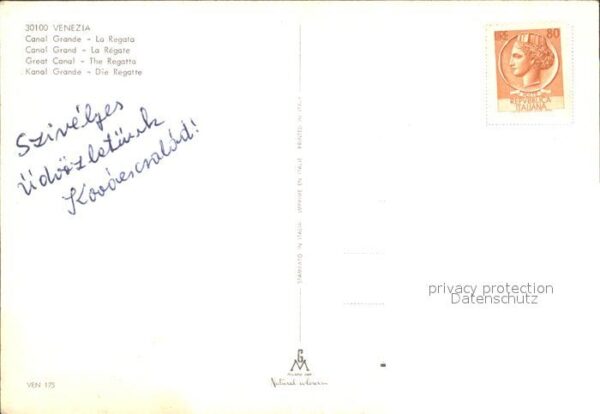 30100 VENEZIA
Canal Grande - La Regata
Canal Grand - La Régate
Great Canal - The Regatta
Kanal Grande - Die Regatte
LIRE 80
POSTE
REPVBBLICA
ITALIANA
Szivélyes
üdvözletünk
Kovácscsalád!
STAMPATO IN ITALIA IMPRIMÉ EN ITALIE PRINTED IN ITALY
privacy protection
Datenschutz
G
M
Natural
VEN 175